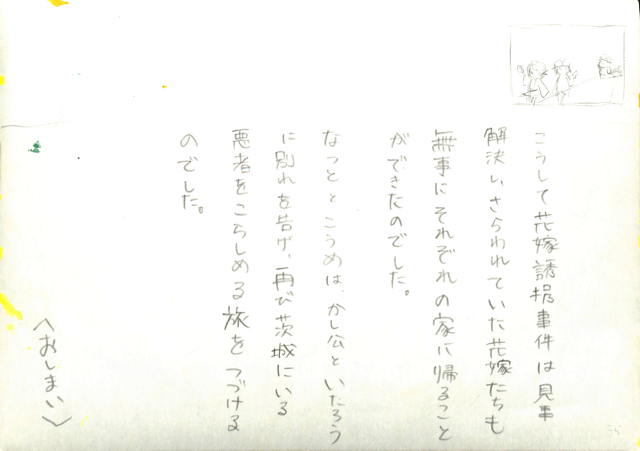 こうして花嫁誘拐事件は見事
解決し、さらわれていた花嫁たちも
無事にそれぞれの家に帰ること
ができたのでした。
なっととこうめは、かし公といたろう
に別れを告げ、再び茨城にいる
悪者をこらしめる旅をつづける
のでした。
〈おしまい〉